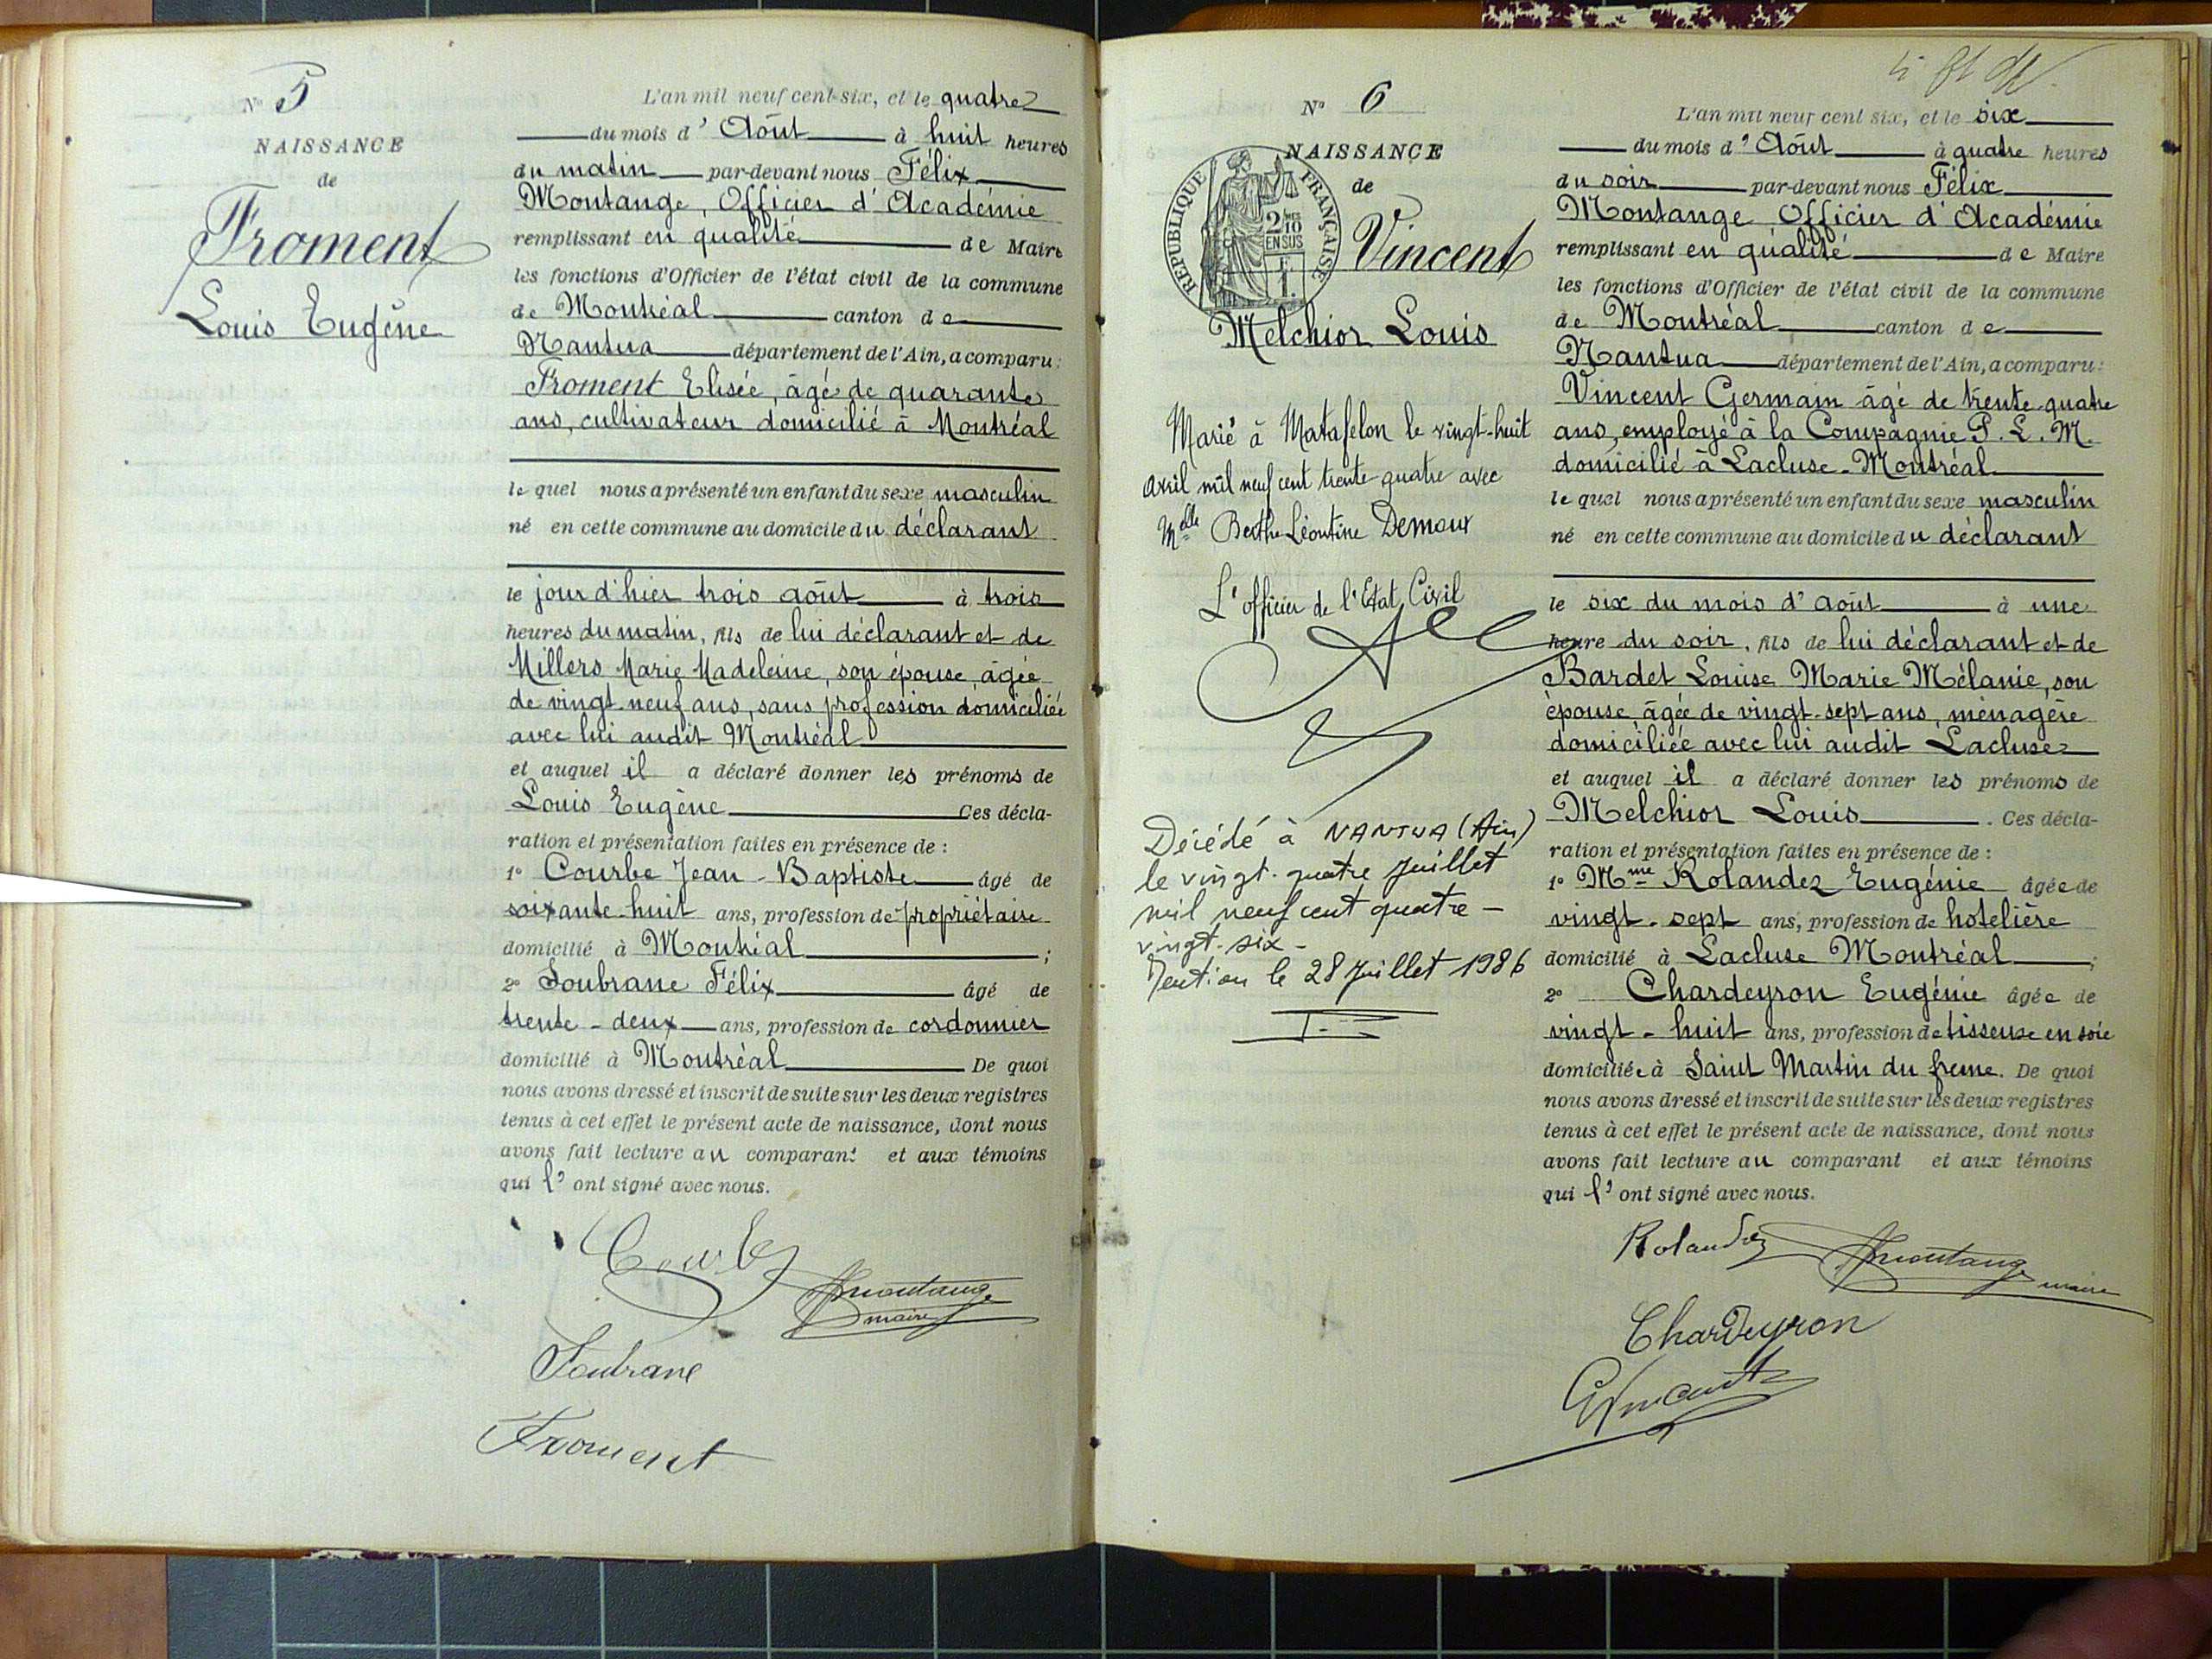 N° 5
NAISSANCE
de
Froment
Louis Eugène
L'an mil neuf cent-six, et le quatre
du mois d' Août à huit heures
du matin par-devant nous Félix
Montange, Officier d'Académie
remplissant en qualité de Maire
les fonctions d'Officier de l'état civil de la commune
de Montréal canton de
Nantua département de l'Ain, a comparu:
Froment Elisée, âgé de quarante
ans, cultivateur domicilié à Montréal
le quel nous a présenté un enfant du sexe masculin
né en cette commune au domicile du déclarant
le jour d'hier trois août à trois
heures du matin, fils de lui déclarant et de
Millers Marie Madeleine, son épouse, âgée
de vingt-neuf ans, sans profession domiciliée
avec lui audit Montréal
et auquel il a déclaré donner les prénoms de
Louis Eugène Ces décla-
ration et présentation faites en présence de :
1° Courbe Jean-Baptiste âgé de
soixante-huit ans, profession de propriétaire
domicilié à Montréal ;
2° Soubrane Félix âgé de
trente-deux ans, profession de cordonnier
domicilié à Montréal De quoi
nous avons dressé et inscrit de suite sur les deux registres
tenus à cet effet le présent acte de naissance, dont nous
avons fait lecture au comparant et aux témoins
qui l' ont signé avec nous.
Courbe
Montange
maire
Soubrane
Froment
N° 6
NAISSANCE
de
REPUBLIQUE FRANÇAISE
2/10
EN SUS
Vincent
Melchior Louis
Marié à Matafelon le vingt-huit
avril mil neuf cent trente quatre avec
Melle Berthe Léontine Demoux
L'officier de l'Etat Civil
Décédé à NANTUA (Ain)
le vingt-quatre Juillet
mil neuf cent quatre-
vingt-six-
Mention le 28 Juillet 1986
L'an mil neuf cent six, et le six
du mois d' Août à quatre heures
du soir par-devant nous Félix
Montange Officier d'Académie
remplissant en qualité de Maire
les fonctions d'Officier de l'état civil de la commune
de Montréal canton de
Nantua département de l'Ain, a comparu:
Vincent Germain âgé de trente-quatre
ans, employé à la Compagnie P. L. M.
domicilié à Lacluse-Montréal
le quel nous a présenté un enfant du sexe masculin
né en cette commune au domicile du déclarant
le six du mois d'août à une
heure du soir, fils de lui déclarant et de
Bardet Louise Marie Mélanie, son
épouse, âgée de vingt-sept ans, ménagère
domiciliée avec lui audit Lacluse
et auquel il a déclaré donner les prénoms de
Melchior Louis . Ces décla-
ration et présentation faites en présence de :
1° Mme Rolandez Eugénie âgée de
vingt-sept ans, profession de hotelière
domicilié à Lacluse Montréal ;
2° Chardeyron Eugénie âgée de
vingt-huit ans, profession de tisseuse en soie
domiciliée à Saint Martin du frene. De quoi
nous avons dressé et inscrit de suite sur les deux registres
tenus à cet effet le présent acte de naissance, dont nous
avons fait lecture au comparant et aux témoins
qui l' ont signé avec nous.
Rolandez
Montange
maire
Chardeyron
G Vincent